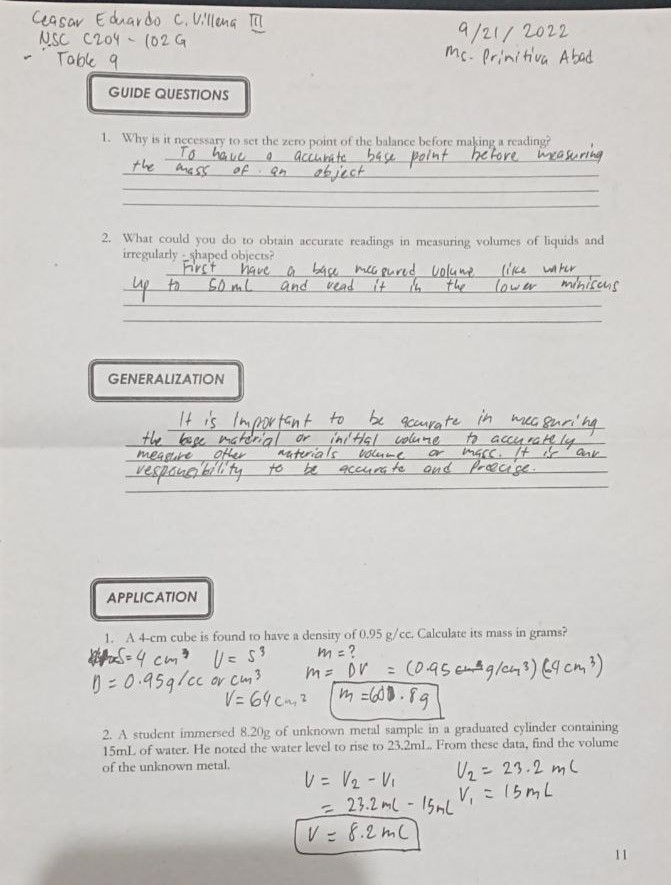 Ceasar Eduardo C. Villena III
9/21/2022
NSC C204 - 102G
Ms. Primitiva Abad
- Table 9
GUIDE QUESTIONS
1. Why is it necessary to set the zero point of the balance before making a reading?
To have a accurate base point before measuring
the mass of an object
2. What could you do to obtain accurate readings in measuring volumes of liquids and
irregularly - shaped objects?
First have a base measured volume like water
up to 50 mL and read it in the lower miniscus
GENERALIZATION
It is Important to be accurate in measuring
the base material or initial volume to accurately
measure other materials volume or mass. It is our
responsibility to be accurate and precise.
APPLICATION
1. A 4-cm cube is found to have a density of 0.95 g/cc. Calculate its mass in grams?
S = 4 cm³ V = S³ m = ?
D = 0.95g/cc or cm³ m = DV = (0.95 g/cm³)(64 cm³)
V = 64 cm³ m = 60.8g
2. A student immersed 8.20g of unknown metal sample in a graduated cylinder containing
15mL of water. He noted the water level to rise to 23.2mL. From these data, find the volume
of the unknown metal.
V = V₂ - V₁ V₂ = 23.2 mL
= 23.2 mL - 15mL V₁ = 15mL
V = 8.2 mL
11